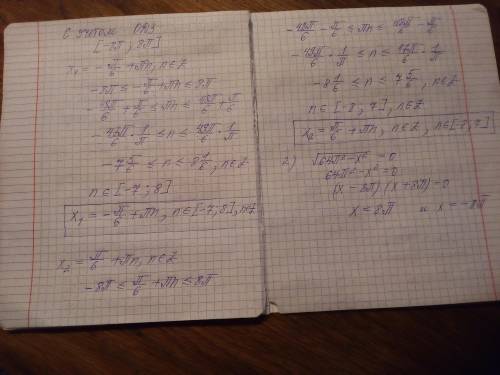 С учётом ОДЗ
[-8π ; 8π]
x₁ = -π/6 + πn, n∈Z
-8π ≤ -π/6 + πn ≤ 8π
-48π/6 + π/6 ≤ πn ≤ 48π/6 + π/6
-47π/6 · 1/π ≤ n ≤ 49π/6 · 1/π
-7 5/6 ≤ n ≤ 8 1/6, n∈Z
n∈[-7 ; 8]
x₁ = -π/6 + πn, n∈[-7; 8], n∈Z
x₂ = π/6 + πn, n∈Z
-8π ≤ π/6 + πn ≤ 8π
-48π/6 - π/6 ≤ πn ≤ 48π/6 - π/6
-49π/6 · 1/π ≤ n ≤ 47π/6 · 1/π
-8 1/6 ≤ n ≤ 7 5/6, n∈Z
n∈[-8, 7], n∈Z
x₂ = π/6 + πn, n∈Z, n∈[-8; 7]
2) √(64π² - x²) = 0
64π² - x² = 0
(x - 8π)(x + 8π) = 0
x = 8π и x = -8π